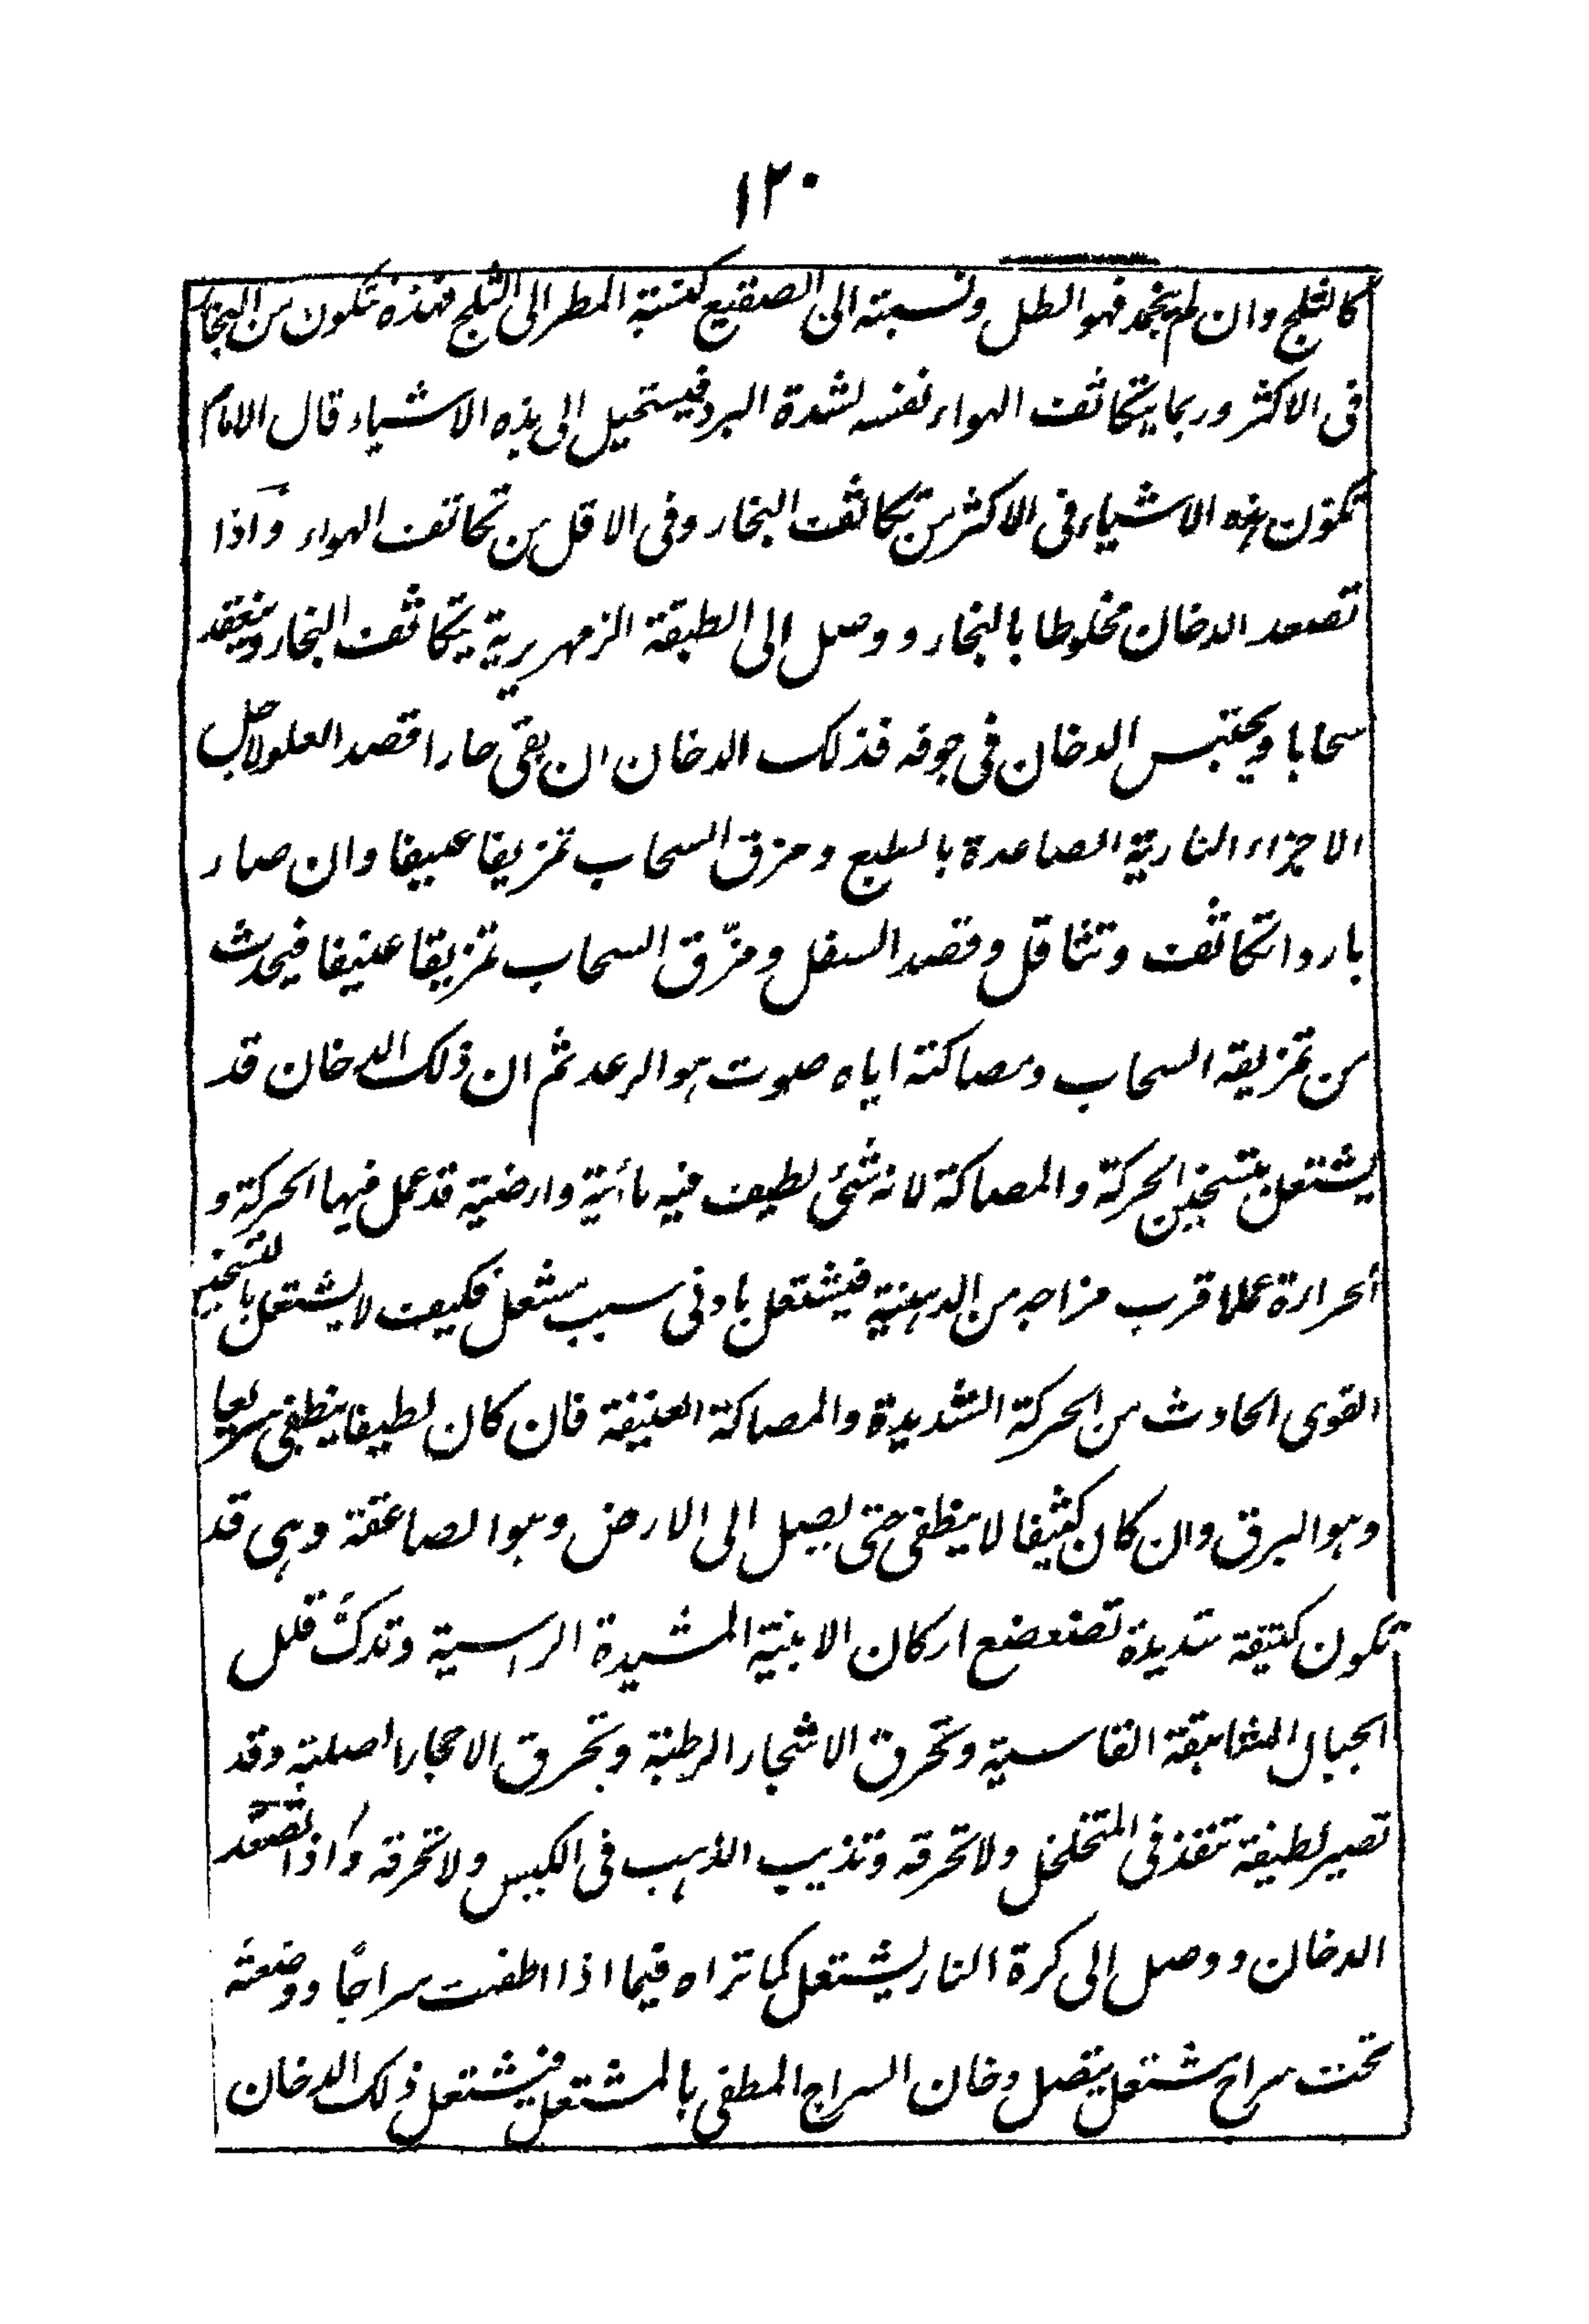 ١٢٠
كالثلج وان لم ينجمد فهو الطل ونسبته الى الصقيع كنسبة المطر الى الثلج فهذه تكون من البخار
فى الاكثر وربما يتكاثف الهواء نفسه لشدة البرد فيستحيل الى هذه الاشياء قال الامام
تكون هذه الاشياء فى الاكثر من تكاثف البخار وفى الاقل من تكاثف الهواء واذا
تصعد الدخان مخلوطا بالبخار ووصل الى الطبقة الزمهريرية يتكاثف البخار وينعقد
سحابا ويحتبس الدخان فى جوفه فذلك الدخان ان بقى حارا قصد العلو لاجل
الاجزاء النارية الصاعدة بالطبع ومزق السحاب تمزيقا عنيفا وان صار
باردا تكاثف وتثاقل وقصد السفل ومزّق السحاب تمزيقا عنيفا فيحدث
من تمزيقه السحاب ومصاكته اياه صوت هو الرعد ثم ان ذلك الدخان قد
يشتعل بتسخين الحركة والمصاكة لانه شئ لطيف فيه مائية وارضية قد عمل فيها الحركة و
الحرارة عملا قرب مزاجه من الدهنية فيشتعل بادنى سبب مشعل فكيف لا يشتعل بالتسخين
القوى الحادث من الحركة الشديدة والمصاكة العنيفة فان كان لطيفا ينطفى سريعا
وهو البرق وان كان كثيفا لا ينطفى حتى يصل الى الارض وهو الصاعقة وهى قد
تكون كثيفة شديدة تضعضع اركان الابنية المشيدة الراسية وتدكّ قلل
الجبال الشاهقة القاسية وتحرق الاشجار الرطبة وتحرق الاحجار الصلبة وقد
تصير لطيفة تنفذ فى المتخلخل ولا تحرقه وتذيب الذهب فى الكيس ولا تحرقه واذا تصعّد
الدخان ووصل الى كرة النار يشتعل كما تراه فيما اذا اطفت سراجًا ووضعته
تحت سراج مشتعل يتصل دخان السراج المطفى بالمشتعل فيشتعل ذلك الدخان